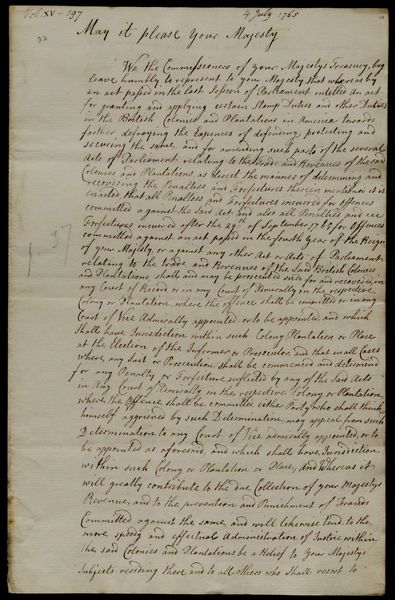 Vol. XV - 197
4 July 1765
37
May it please Your Majesty
We the Commissioners of Your Majestys Treasury, beg
leave humbly to represent to your Majesty, that whereas by
an act passed in the last Session of Parliament intitled An act
for granting and applying certain Stamp Duties and other Duties
in the British Colonies and Plantations in America towards
farther defraying the Expences of defending, protecting and
securing the same, and for amending such parts of the several
Acts of Parliament relating to the trade and Revenues of the said
Colonies and Plantations as direct the manner of determining and
recovering the Penalties and Forfeitures therein mentioned it is
Enacted that all Penalties and Forfeitures incurred for offences
committed against the said Act and also all Penalties and
Forfeitures incurred after the 29th of September 1765 for Offences
committed against an act passed in the fourth year of the Reign
of your Majesty or against any other Act or Acts of Parliament
relating to the trade and Revenues of the said British Colonies
and Plantations, shall and may be prosecuted sued for and recovered in
any Court of Record or in any Court of Admiralty in the respective
Colony or Plantation, where the offence shall be committed or in any
Court of Vice Admiralty appointed or to be appointed, and which
Shall have Jurisdiction within such Colony Plantation or Place
at the Election of the Informer or Prosecutor, and that in all Cases
where any Suit or Prosecution shall be commenced and determined
for any Penalty or Forfeiture inflicted by any of the said Acts
in any Court of Admiralty in the respective Colony or Plantation,
where the Offence shall be committed, either Party who shall think
himself aggrieved by such Determination, may appeal from such
Determination to any Court of Vice admiralty appointed, or to
be appointed as aforesaid, and which shall have Jurisdiction
within such Colony or Plantation or Place, And whereas it
will greatly contribute to the due Collection of your Majestys
Revenue, and to the prevention and Punishment of Frauds
Committed against the same, and will likewise tend to the
more speedy and effectual Administration of Justice within
the said Colonies and Plantations be a Relief to Your Majestys
Subjects residing there, and to all others who Shall resort to
37